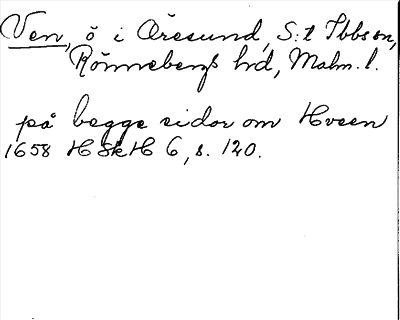 Ven, ö i Öresund, S:t Ibbs sn,
Rönnebergs hd, Malm. l.
på begge sidor om Hveen
1658 HSkH 6, s. 120.